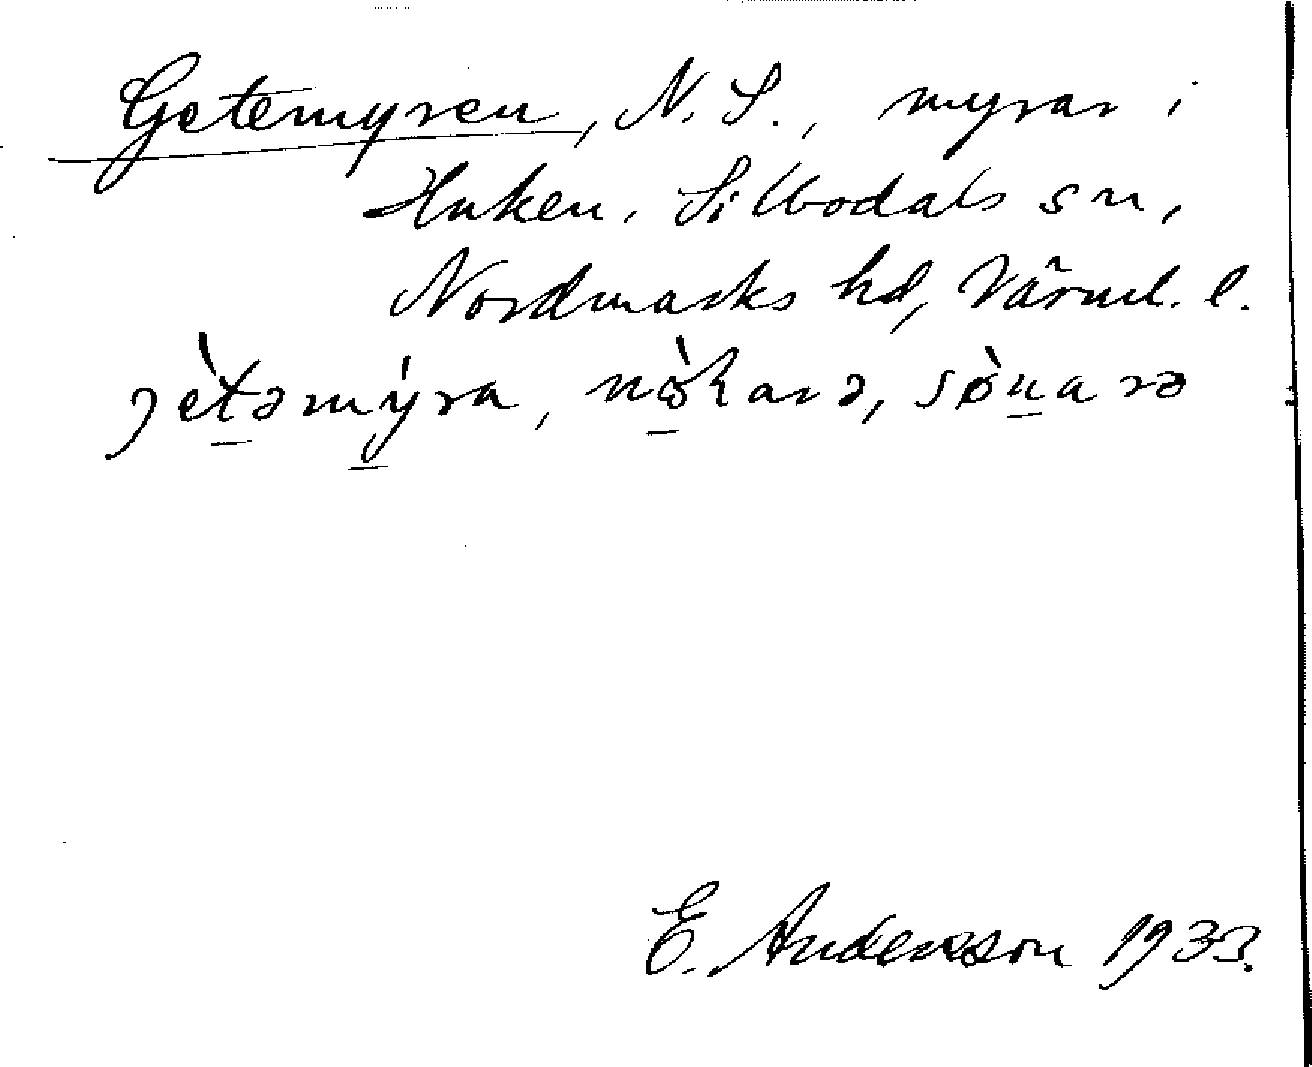 Getemyren, N. S., myrar i
Huken. Sillbodals sn,
Nordmarks hd, Värml. l.
jètəmýra, nø̀karə, sø̀narə
E. Andersson 1933.